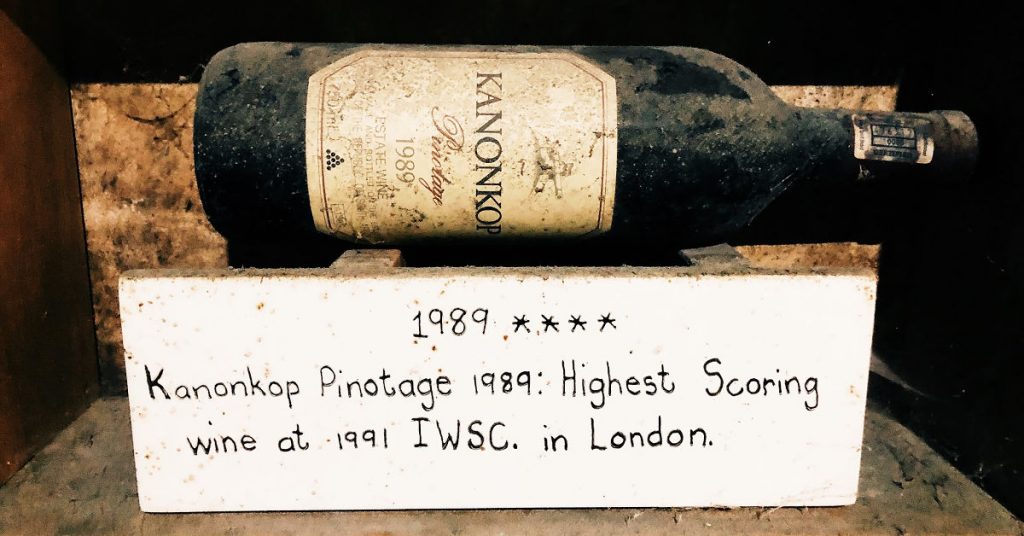 KANONKOP
Pinotage
1989
ESTATE WINE
1989 ****
Kanonkop Pinotage 1989: Highest Scoring
wine at 1991 IWSC. in London.